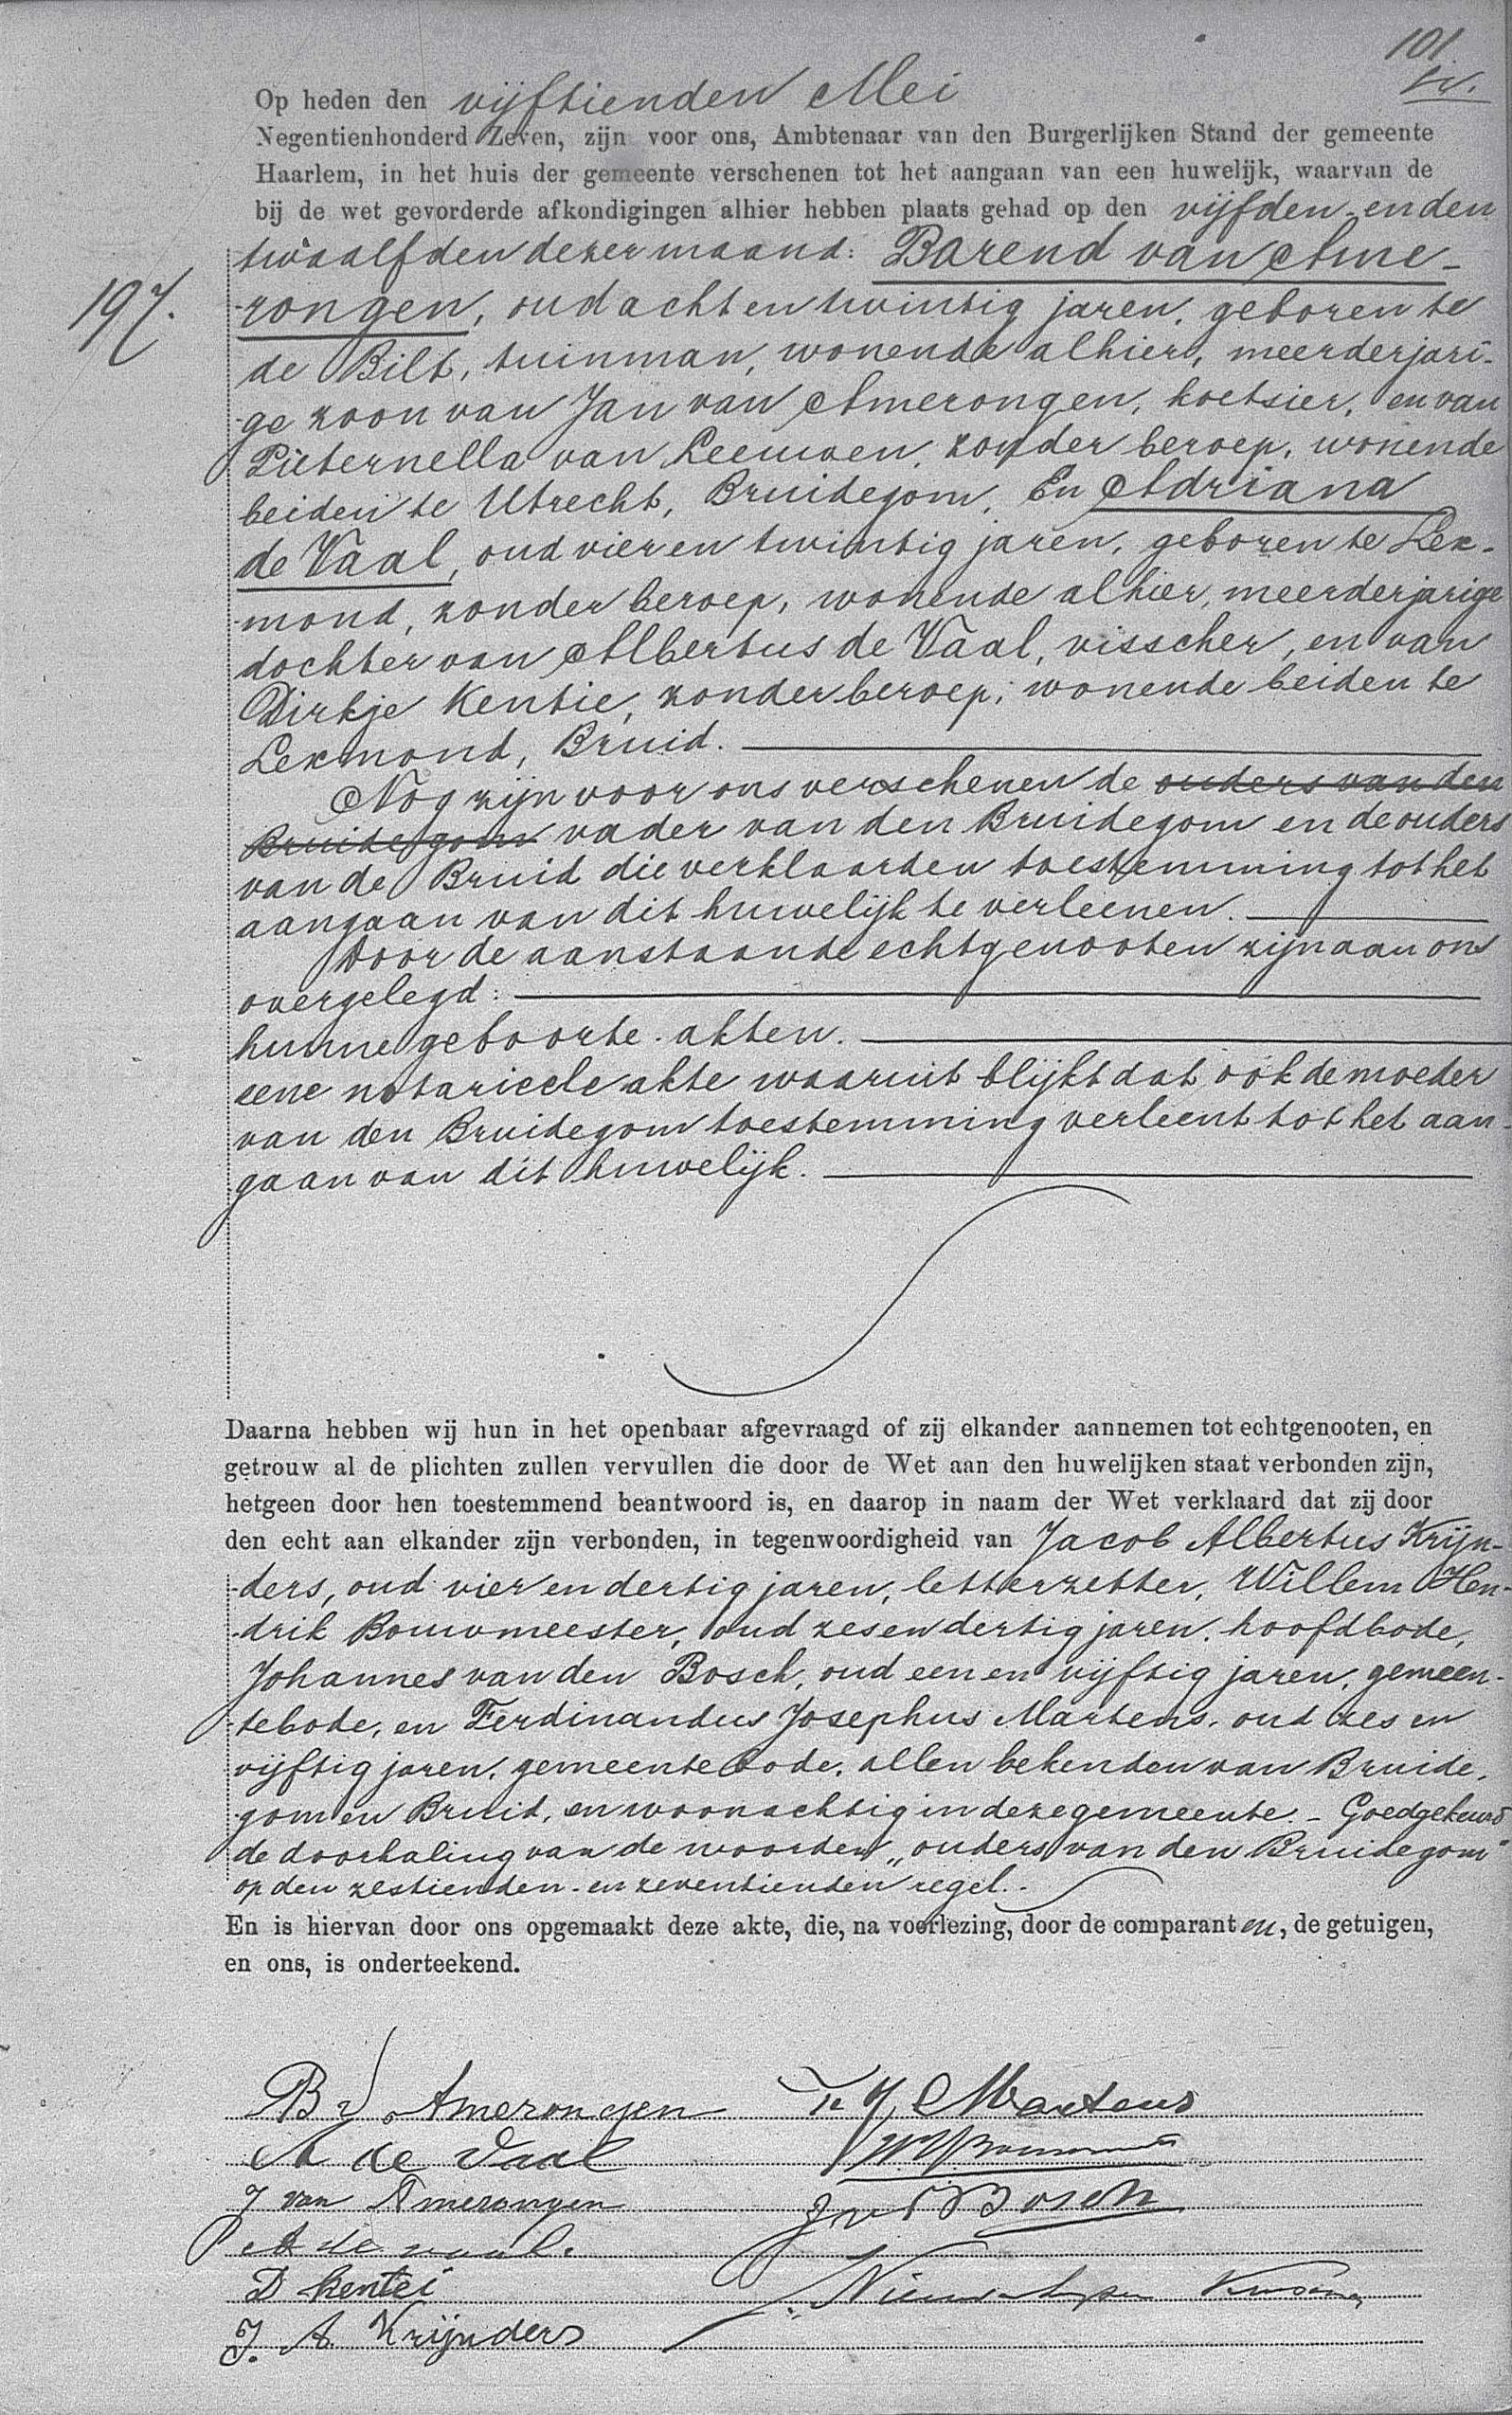 101
Op heden den vijftienden Mei
Negentienhonderd Zeven, zijn voor ons, Ambtenaar van den Burgerlijken Stand der gemeente
Haarlem, in het huis der gemeente verschenen tot het aangaan van een huwelijk, waarvan de
bij de wet gevorderde afkondigingen alhier hebben plaats gehad op den vijfden en den
twaalfden dezer maand: Barend van Ame-
197.
-rongen, oud acht en twintig jaren, geboren te
de Bilt, tuinman, wonende alhier, meerderjari-
ge zoon van Jan van Amerongen, koetsier, en van
Pieternella van Leeuwen, zonder beroep, wonende
beiden te Utrecht, Bruidegom, En Adriana
de Vaal, oud vier en twintig jaren, geboren te Lex-
-mond, zonder beroep, wonende alhier, meerderjarige
dochter van Albertus de Vaal, visscher, en van
Dirkje Kentie, zonder beroep, wonende beiden te
Lexmond, Bruid.
Nog zijn voor ons verschenen de ouders van den
Bruidegom vader van den Bruidegom en de ouders
van de Bruid die verklaarden toestemming tot het
aangaan van dit huwelijk te verleenen.
Door de aanstaande echtgenooten zijn aan ons
overgelegd:
hunne geboorte-akten.
eene notarieele akte waaruit blijkt dat ook de moeder
van den Bruidegom toestemming verleent tot het aan-
gaan van dit huwelijk.
Daarna hebben wij hun in het openbaar afgevraagd of zij elkander aannemen tot echtgenooten, en
getrouw al de plichten zullen vervullen die door de Wet aan den huwelijken staat verbonden zijn,
hetgeen door hen toestemmend beantwoord is, en daarop in naam der Wet verklaard dat zij door
den echt aan elkander zijn verbonden, in tegenwoordigheid van Jacob Albertus Krijn-
-ders, oud vier en dertig jaren, letterzetter, Willem Hen-
-drik Bouwmeester, oud zes en dertig jaren, hoofdbode,
Johannes van den Bosch, oud een en vijftig jaren, gemeen-
-tebode, en Ferdinandus Josephus Martens, oud zes en
vijftig jaren, gemeentebode, allen bekenden van Bruide-
gom en Bruid, en woonachtig in deze gemeente. - Goedgekeurd
de doorhaling van de woorden "ouders van den Bruidegom"
op den zestienden- en zeventienden regel.
En is hiervan door ons opgemaakt deze akte, die, na voorlezing, door de comparanten, de getuigen,
en ons, is onderteekend.
B v Amerongen
F J Martens
A de Vaal
J van Amerongen
J v d Bosch
A de vaal.
D kentei
J. A. Krijnders